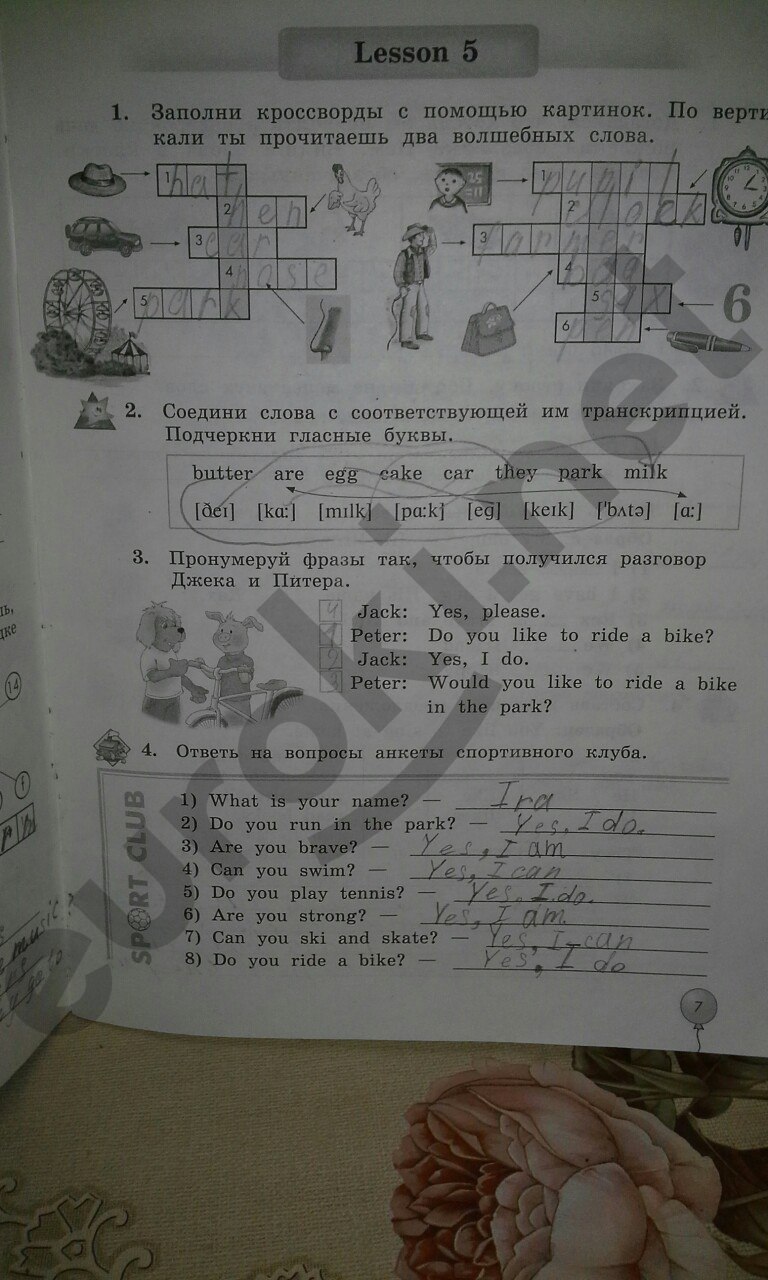 Lesson 5
1. Заполни кроссворды с помощью картинок. По верти
кали ты прочитаешь два волшебных слова.
1 hat
2 hen
3 car
4 nose
5 park
1 pupil
2 clock
3 farmer
4 bag
5 six
6
6
2. Соедини слова с соответствующей им транскрипцией.
Подчеркни гласные буквы.
butter are egg cake car they park milk
[ðeɪ] [kɑ:] [mɪlk] [pɑ:k] [eg] [keɪk] ['bʌtə] [ɑ:]
3. Пронумеруй фразы так, чтобы получился разговор
Джека и Питера.
4 Jack: Yes, please.
1 Peter: Do you like to ride a bike?
2 Jack: Yes, I do.
3 Peter: Would you like to ride a bike
in the park?
4. Ответь на вопросы анкеты спортивного клуба.
SPORT CLUB
1) What is your name? — Ira
2) Do you run in the park? — Yes, I do.
3) Are you brave? — Yes, I am
4) Can you swim? — Yes, I can
5) Do you play tennis? — Yes, I do.
6) Are you strong? — Yes, I am
7) Can you ski and skate? — Yes, I can
8) Do you ride a bike? — Yes, I do
7
14
euroki.net